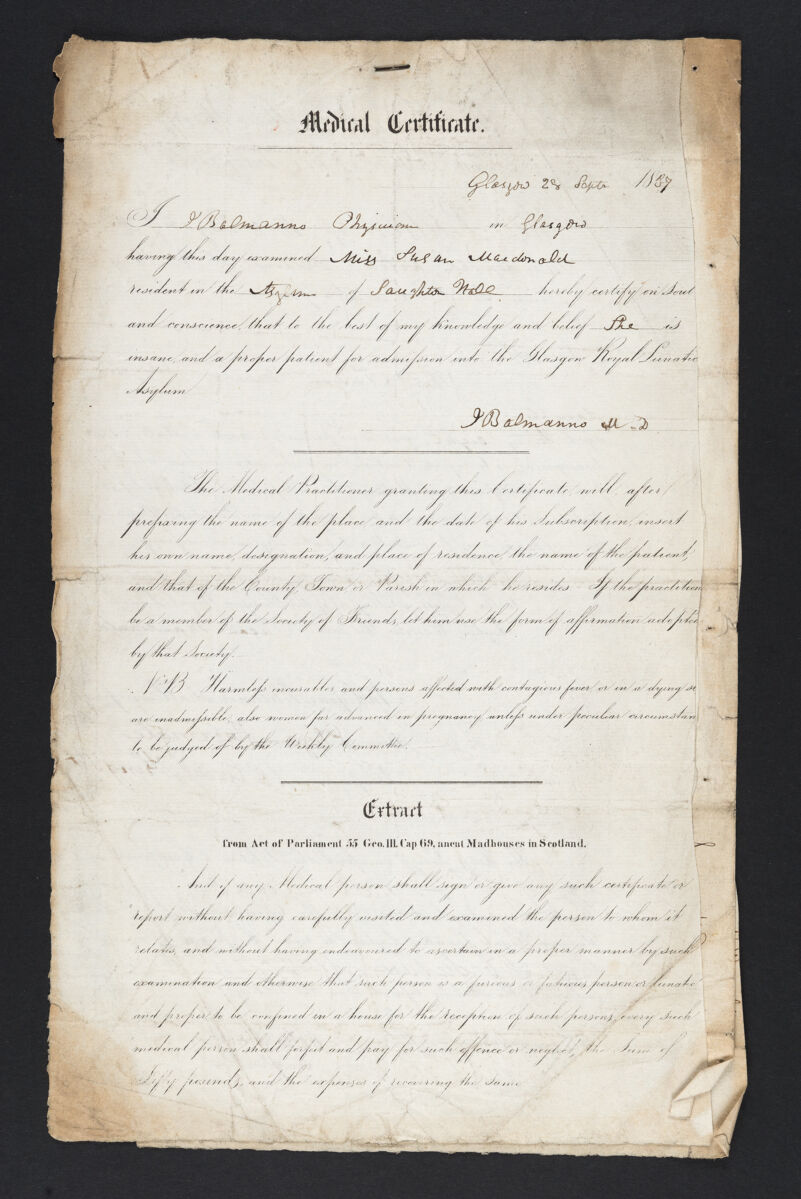 Medical Certificate.
Glasgow 28 Septr 1837
I J Balmanno Physician in Glasgow
having this day examined Miss Susan Macdonald
resident in the Asylum of Saughton Hall hereby certify on soul
and conscience, that to the best of my knowledge and belief She is
insane, and a proper patient for admission into the Glasgow Royal Lunatic
Asylum
J Balmanno M.D
The Medical Practitioner granting this Certificate, will, after
prefixing the name of the place and the date of his Subscription, insert
his own name, designation, and place of residence, the name of the patient,
and that of the County, Town or Parish in which he resides. If the practition
be a member of the Society of Friends, let him use the form of affirmation adopte
by that Society.
N.B Harmless incurables and persons affected with contagious fever or in a dying st
are inadmissible, also women far advanced in pregnancy unless under peculiar circumstan
to be judged of by the Weekly Committee.
Extract
from Act of Parliament 55 Geo. III. Cap 69, anent Madhouses in Scotland.
And if any Medical person shall sign or give any such certificate or
report without having carefully visited and examined the person to whom it
relates, and without having endeavoured to ascertain in a proper manner by such
examination and otherwise that such person is a furious or fatuous person or lunatic
and proper to be confined in a house for the reception of such persons, every such
medical person shall forfeit and pay for such offence or neglect, the Sum of
Fifty pounds, and the expenses of recovering the same